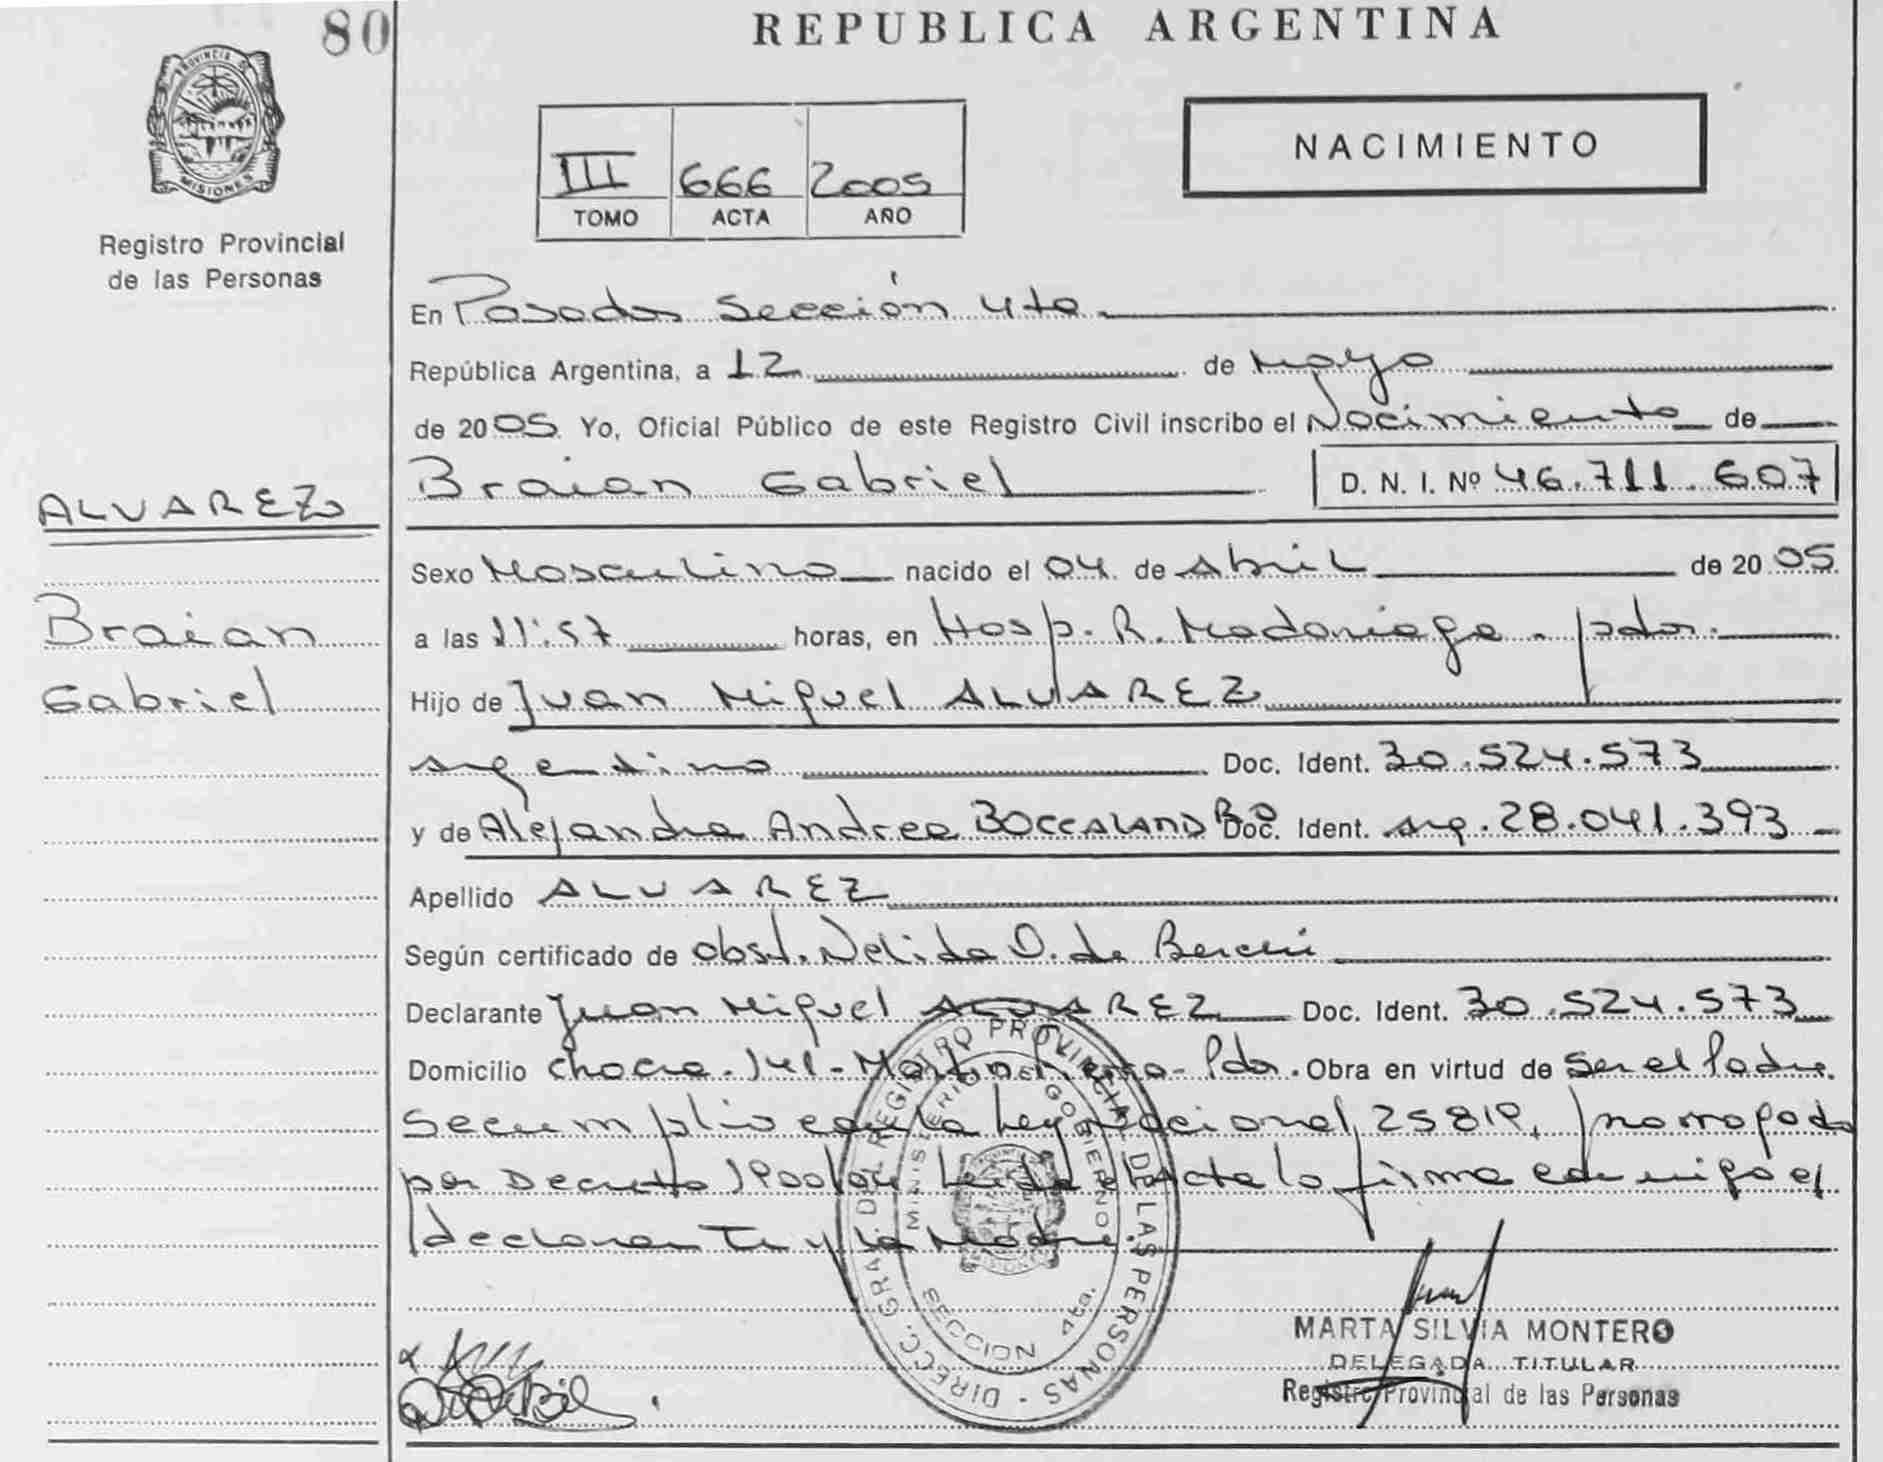 80
REPUBLICA ARGENTINA
PROVINCIA DE
MISIONES
Registro Provincial
de las Personas
NACIMIENTO
III 666 2005
TOMO ACTA AÑO
En Posadas Sección 4ta
República Argentina, a 12 de Mayo
de 2005 Yo, Oficial Público de este Registro Civil inscribo el Nacimiento de
Braian Gabriel D. N. I. Nº 46.711.607
ALVAREZ
Braian
Gabriel
Sexo Masculino nacido el 04 de Abril de 2005
a las 11:57 horas, en Hosp. R. Madariaga - pdas.
Hijo de Juan Miguel ALVAREZ
argentino Doc. Ident. 30.524.573
y de Alejandra Andrea BOCCALANDRO Doc. Ident. arg. 28.041.393
Apellido ALVAREZ
Según certificado de obst. Nelida O. de
Declarante Juan Miguel ALVAREZ Doc. Ident. 30.524.573
Domicilio chacra. 141 - Martin Fierro - Pdas. Obra en virtud de ser el Padre.
Se cumplio con la Ley Nacional 25819, prorrogada
por Decreto 1900/04 Leida el Acta lo firma conmigo el
declarante y la Madre.
DIRECC. GRAL. DEL REGISTRO PROVINCIAL DE LAS PERSONAS
MINISTERIO DE GOBIERNO
SECCION 4ta.
MARTA SILVIA MONTERO
DELEGADA TITULAR
Registro Provincial de las Personas